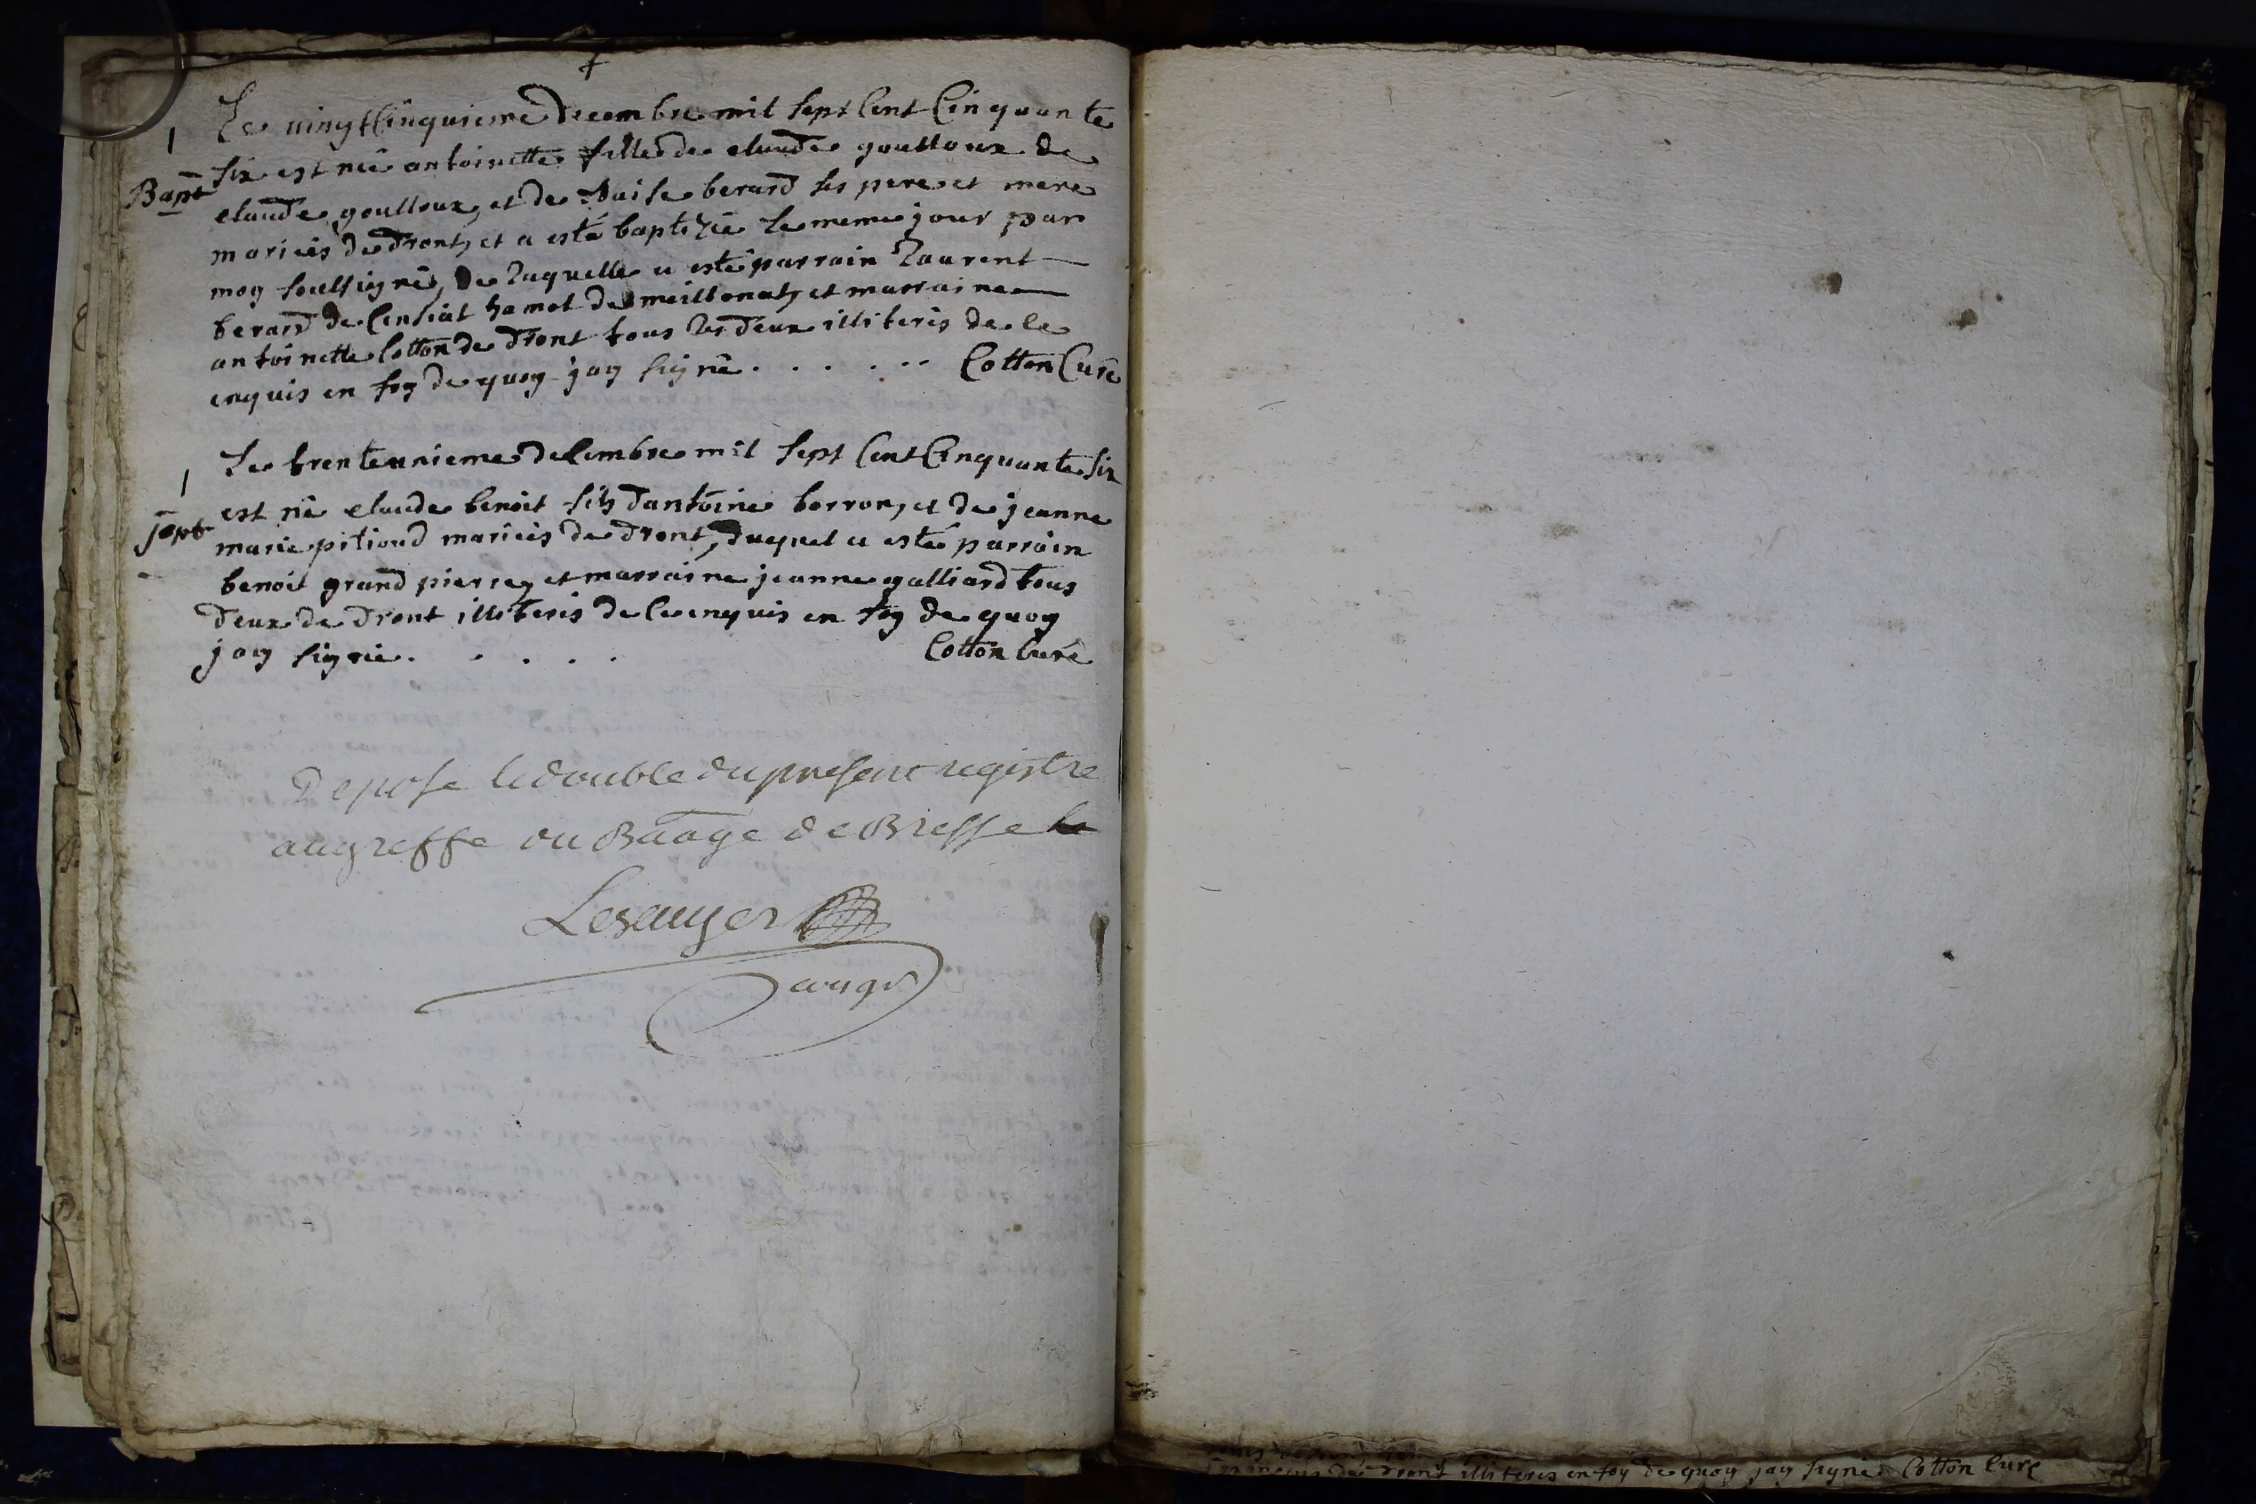 Le vingt Cinquieme decembre mil sept Cent Cinquante
six est née antoinette fille de claude goulloux de
Bapt
claude goulloux, et de Suise berard ses pere et mere
mariés de dront, et a esté baptizée le meme jour par
moy soussigné, de laquelle a esté parrain laurent
berard de Censiat hamot de meillonats et marraine
antoinette Cotton de dront tous les deux illiterés de ce
enquis en foy de quoy jay signé . . . . . . Cotton Curé
Le trente unieme decembre mil sept Cent Cinquante six
est né claude benoit fils dantoine borron, et de jeanne
marie pitioud mariés de dront, duquel a esté parrain
benoit grand pierre, et marraine jeanne galliard tous
deux de dront illiterés de ce enquis en foy de quoy
jay signé . . . . . Cotton Curé
Depose le double du present registre
au greffe du Baage de Bresse
illiterés en foy de quoy jay signé Cotton Curé